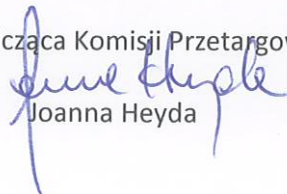 cząca Komisji Przetargow
Joanna Heyda